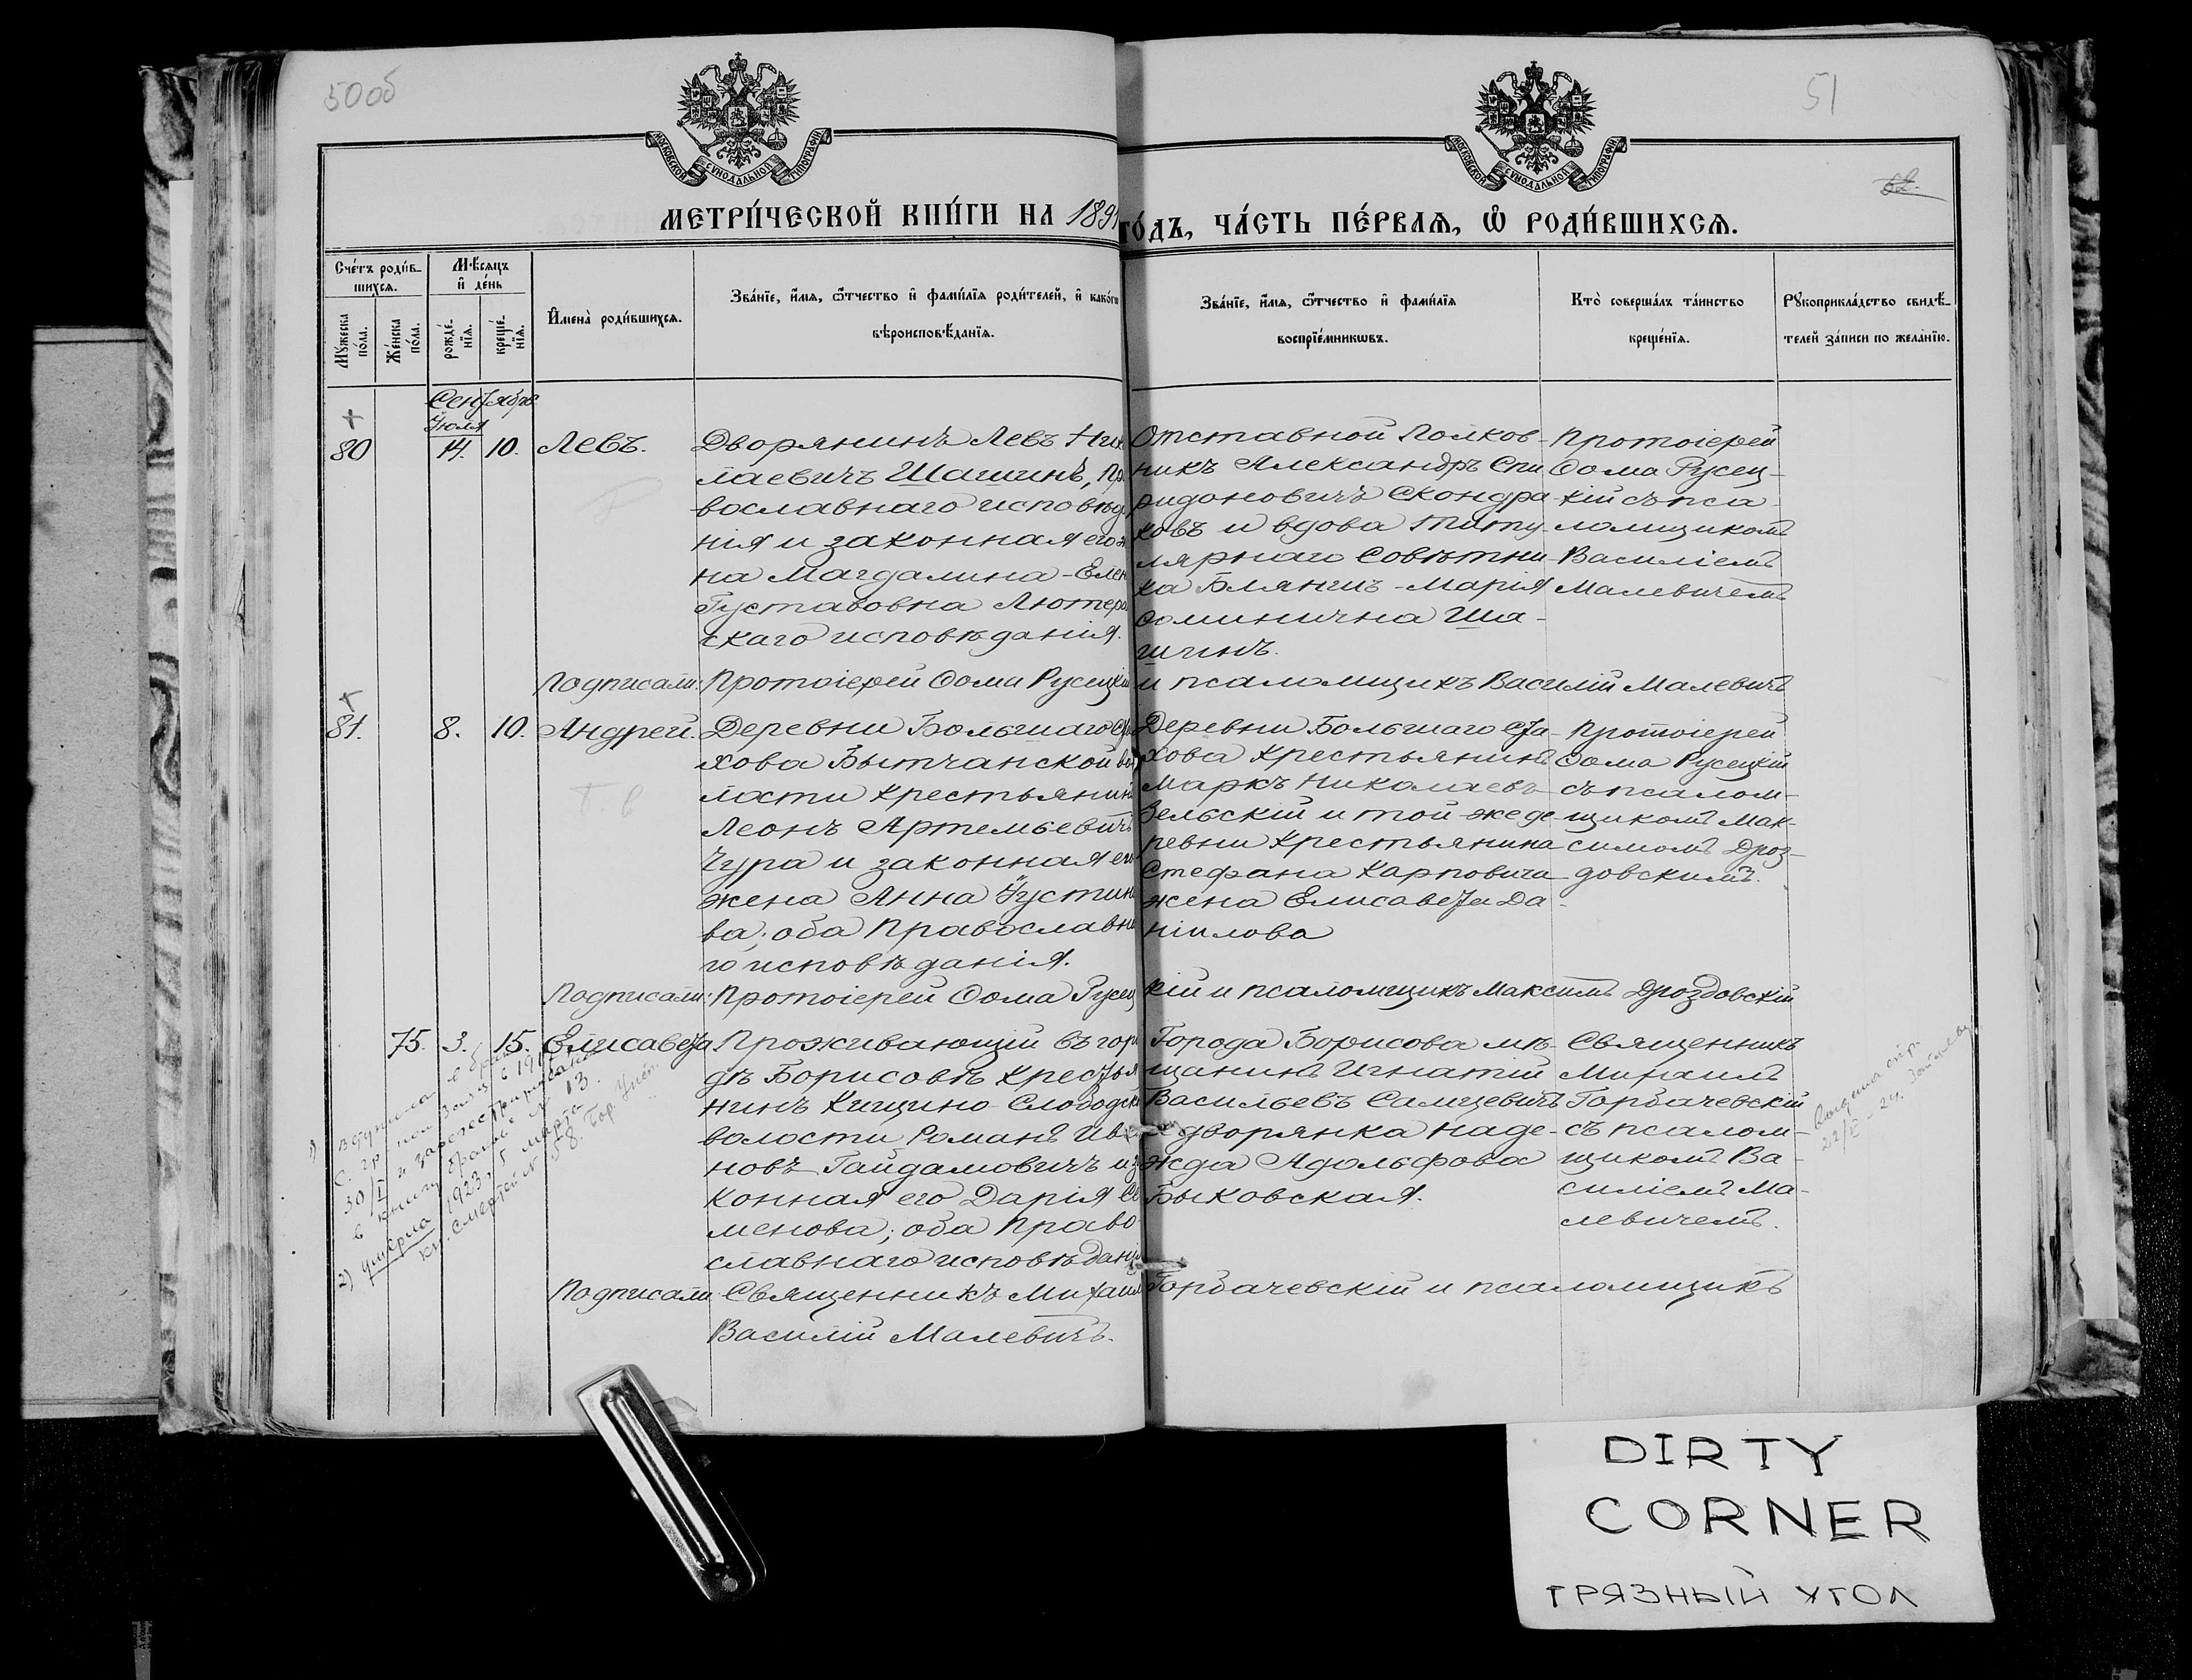 50 об
51
62.
МОСКОВСКОЙ СѴНОДАЛЬНОЙ ТИПОГРАФІИ
МОСКОВСКОЙ СѴНОДАЛЬНОЙ ТИПОГРАФІИ
МЕТРИ́ЧЕСКОЙ КНИ́ГИ НА 1891
ГО́ДЪ, ЧА́СТЬ ПЕ́РВАЯ, Ѡ҆ РОДИ́ВШИХСЯ.
Сче́тъ роди́в-
шихся.
Мѣ́сяцъ
и҆ де́нь
Мꙋ́жеска
по́ла.
Же́нска
по́ла.
рожде́-
нїя.
креще́-
нїя.
И҆мена̀ роди́вшихся.
Зва́нїе, и҆́мя, ѻ҆́тчество и҆ фами́лїя роди́телей, и҆ како́гѡ
вѣроисповѣ́данїя.
Зва́нїе, и҆́мя, ѻ҆́тчество и҆ фами́лїя
воспрїе́мникѡвъ.
Кто̀ соверша́лъ та́инство
креще́нїя.
Рꙋкоприкла́дство свидѣ́-
телей за́писи по жела́нїю.
Сентябрь
Іюля
80 14. 10. Левъ.
Дворянинъ Левъ Нико
лаевичъ Шашинъ, Пра
вославнаго исповѣда
нія и законная его же
на Магдалина-Елена
Густавовна Лютеран
скаго исповѣданія.
Отставной Полков-
никъ Александръ Спи
ридоновичъ Скондра
ковъ и вдова Титу
лярнаго Совѣтни
ка Блянгъ-Марія
Ѳоминична Ша-
шинъ.
Протоіерей
Ѳома Русец-
кій съ пса-
ломщикомъ
Василіемъ
Малевичемъ
Подписали: Протоіерей Ѳома Русецкій и псаломщикъ Василій Малевичъ
81. 8. 10. Андрей.
Деревни Большаго Ста
хова Бытчанской во
лости крестьянинъ
Леонъ Артемьевичъ
Чура и законная его
жена Анна Іустино
ва; оба Православна
го исповѣданія.
Деревни Большаго Ста-
хова крестьянинъ
Маркъ Николаевъ
Зельскій и той-же де-
ревни крестьянина
Стефана Карповича
жена Елисавета Да-
ніилова
Протоіерей
Ѳома Русецкій
съ псалом-
щикомъ Мак-
симомъ Дроз-
довскимъ.
Подписали: Протоіерей Ѳома Русецкій и псаломщикъ Максимъ Дроздовскій
75. 3. 15. Елисавета
Проживающій въ горо
дѣ Борисовѣ крестья
нинъ Кищино-Слободской
волости Романъ Ива
новъ Гайдамовичъ и за
конная его Дарія Се
менова; оба Право
славнаго исповѣданія
Города Борисова мѣ-
щанинъ Игнатій
Васильевъ Самцевичъ
и дворянка Наде-
жда Адольфова
Быковская.
Священникъ
Михаилъ
Горбачевскій
съ псалом-
щикомъ Ва-
силіемъ Ма-
левичемъ.
Подписали: Священникъ Михаилъ Горбачевскій и псаломщикъ
Василій Малевичъ.
1) Вступила в брак
С. гр-ном
30/I и зарегистрирован
в книгу браков № 13.
2) Умерла 1923 г. 5 марта
кн. смертей № 58.
22/I - 24.
DIRTY
CORNER
ГРЯЗНЫЙ УГОЛ